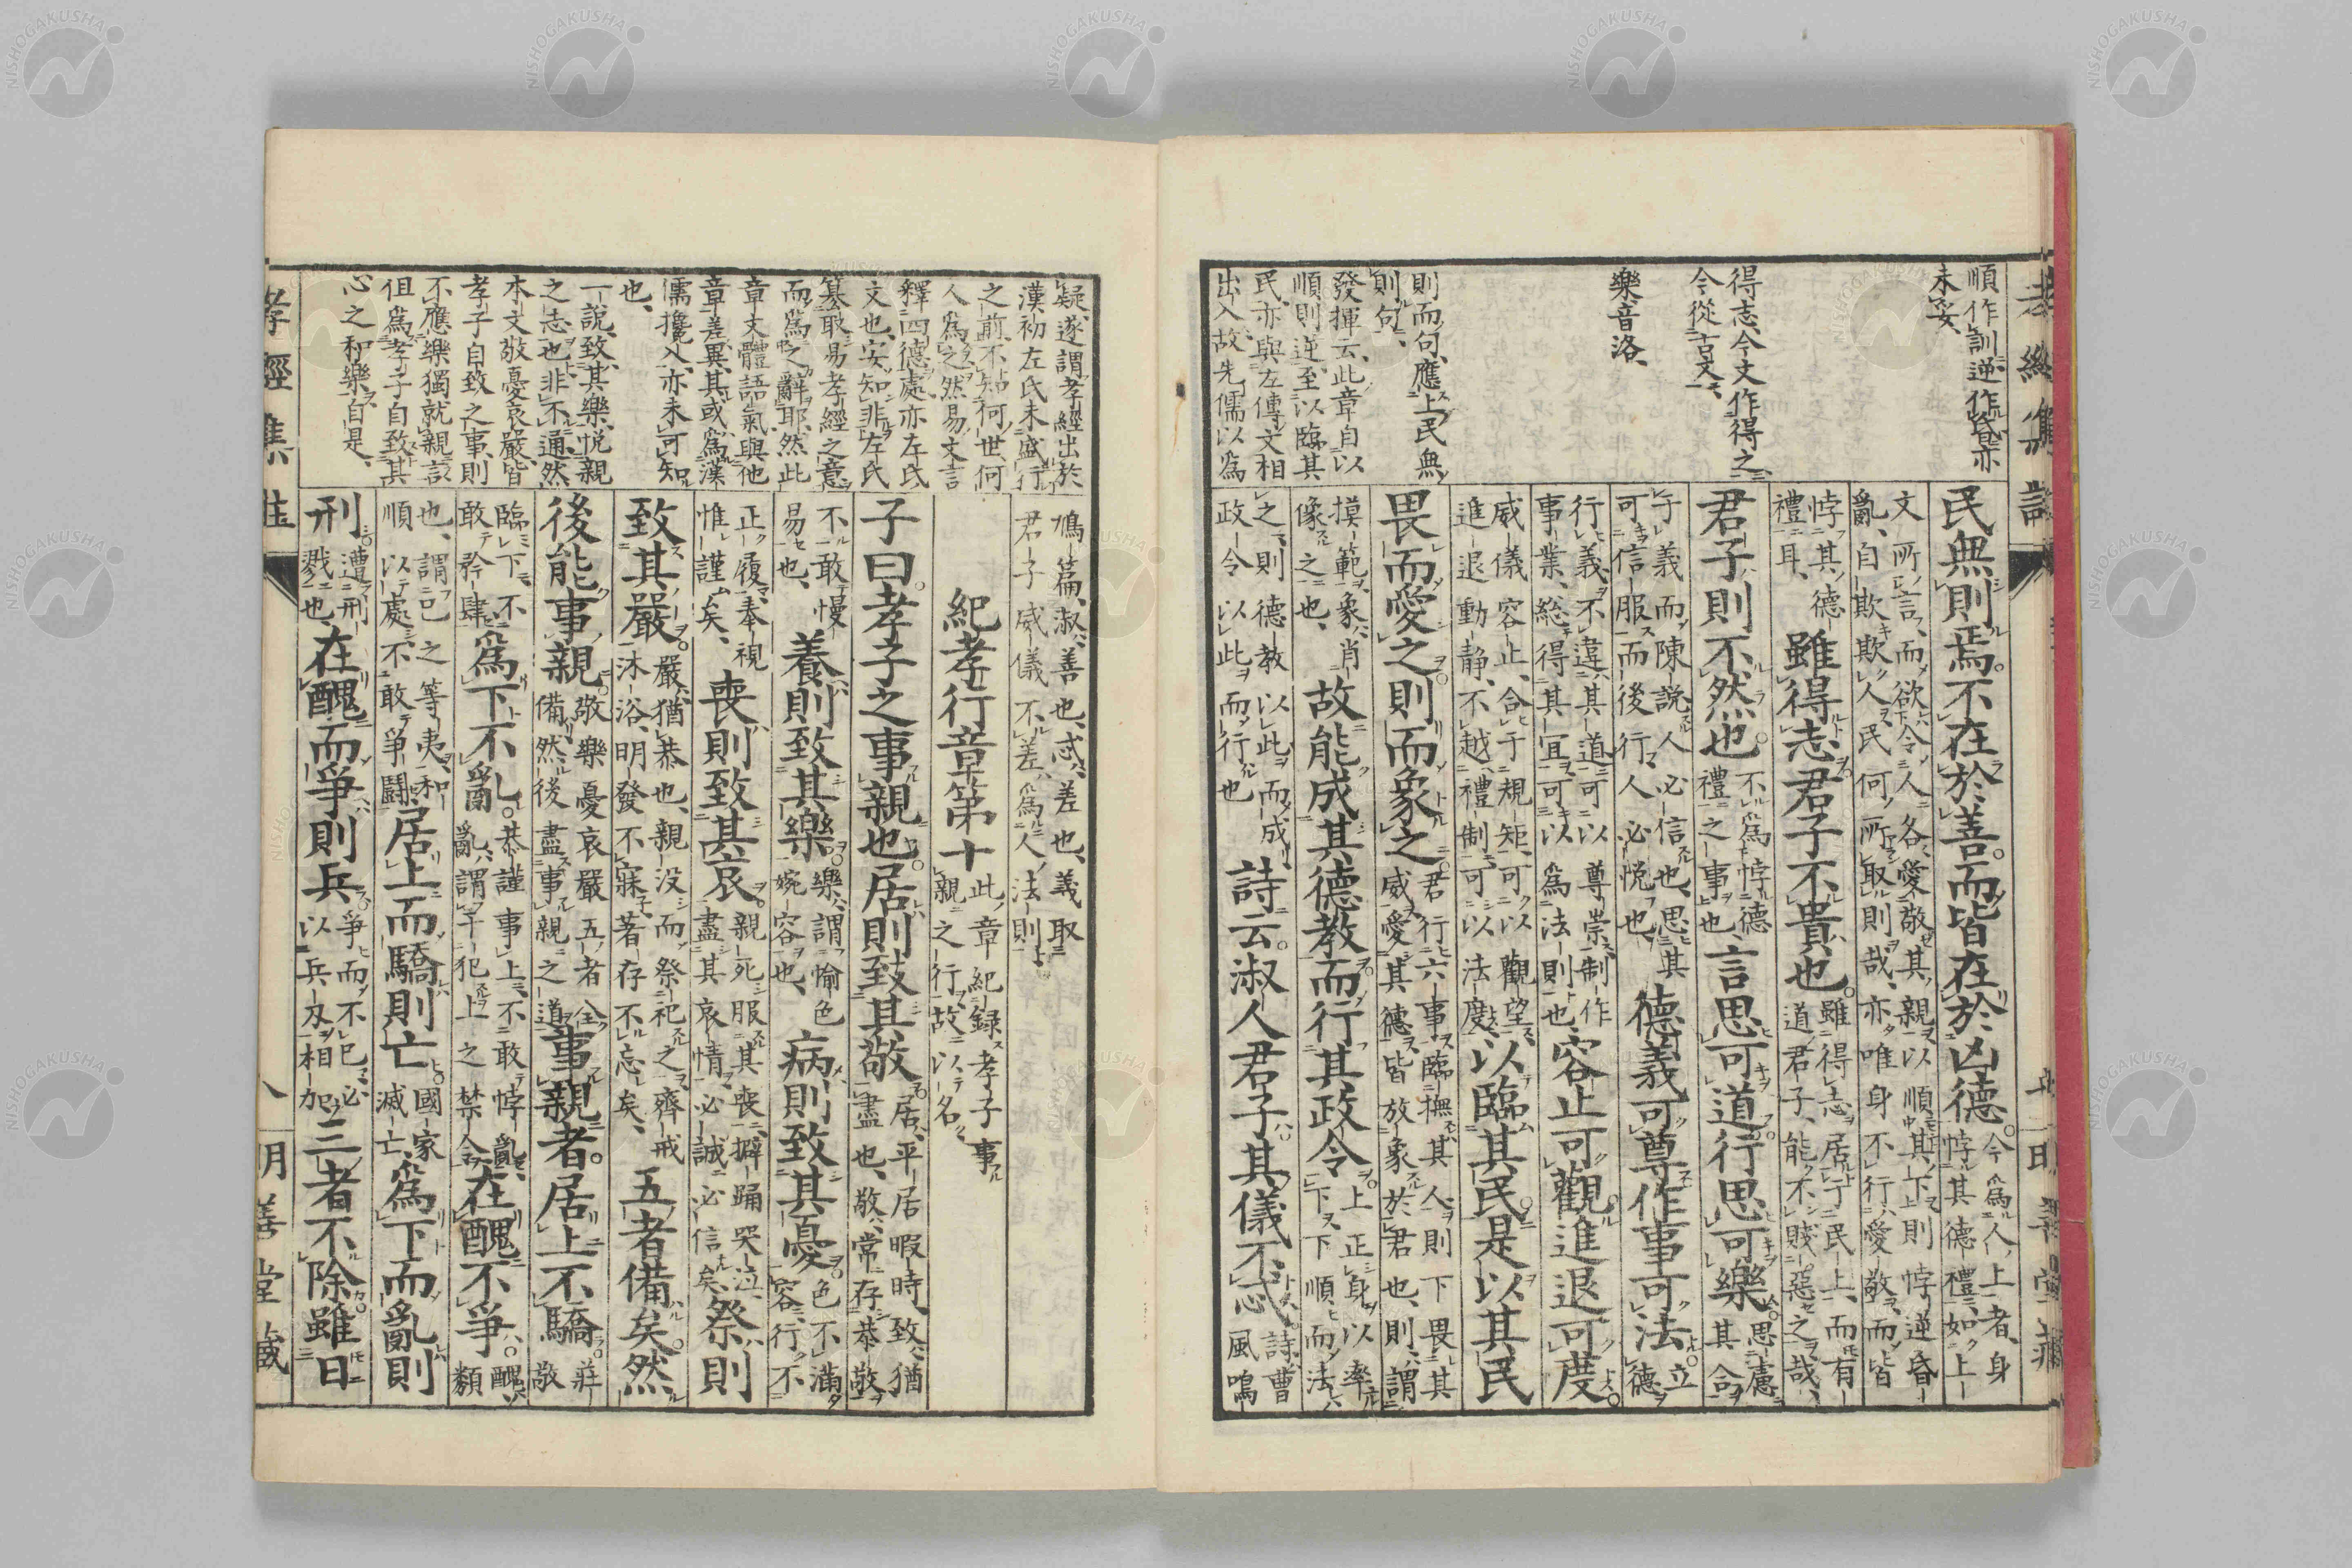 順作訓逆作昏亦
未妥、
得志、今文作得之、
今從古文、
樂音洛、
則而句、應上民無
則句、
發揮云、此章自以
順則逆、至以臨其
民、亦與左傳文相
出入、故先儒以爲
民無則焉。不在於善。而皆在於凶德。今爲人上者、身
悖其德禮、如上
文所言、而欲令人各愛敬其親、以順其上、則悖逆昏
亂、自欺欺人、民何所取則哉、亦唯身不行愛敬、而皆
悖其德
禮耳、雖得志君子不貴也。雖得志居于民上、而有
道君子、能不賤惡之哉、
君子則不然也。不爲悖德
禮之事也、言思可道行思可樂思慮其合
于義而陳說、人必信也、思其
可信服而後行、人必悦也、德義可尊作事可法立德
行義、不違其道、可以尊崇、制作
事業、総得其宜、可以爲法則也、容止可觀進退可度
威儀容止、合于規矩、可以觀望、
進退動静、不越禮制、可以法度、以臨其民是以其民
畏而愛之則而象之君行六事臨撫其人、則下畏其
威愛其德、皆放象於君也、則謂
摸範、象肖
像之也、故能成其德教而行其政令。上正身以率
下、下順而法
之、則德教以此而成、
政令以此而行也詩云。淑人君子。其儀不忒詩曹
風鳴
鳩篇、淑、善也、忒、差也、義取
君子威儀不差、爲人法則、
疑、遂謂孝經出於
漢初左氏未盛行
之前、不知何世何
人爲之、然易文言
釋四德處、亦左氏
文也、安知非左氏
纂取易孝經之意
而爲之辭耶、然此
章文體語氣與他
章差異、其或爲漢
儒攙入、亦未可知
也、
一說、致其樂、悦親
之志也、非不通、然
本文敬憂哀嚴、皆
孝子自致之事、則
不應樂獨就親言
但爲孝子自致其
心之和樂自是、
紀孝行章第十此章紀録孝子事
親之行、故以名
子曰。孝子之事親也。居則致其敬居平居暇時、致猶
盡也、敬、常存恭敬
不敢慢
易也、養則致其樂樂謂愉色
婉容也、病則致其憂色不滿
容、行不
正履、奉視
惟謹矣、喪則致其哀親死服其喪、擗踊哭泣、
盡其哀情、必誠必信矣、祭則
致其嚴嚴、猶恭也、親没而祭祀之、齊戒
沐浴、明發不寐、著存不忘矣、五者備矣。然
後能事親敬樂憂哀嚴五者全
備、然後盡事親之道、事親者。居上不驕莊敬
臨下、不
敢矜肆、爲下不亂恭謹事上、不敢悖亂、
亂、謂干犯上之禁令、在醜不爭醜、類
也、謂己之等夷、和
順以處、不敢爭鬬、居上而驕則亡國家
滅亡、爲下而亂則
刑遭刑
戮也、在醜而爭則兵爭而不已、必
以兵刃相加、三者不除雖日
孝經集註
八
明善堂藏